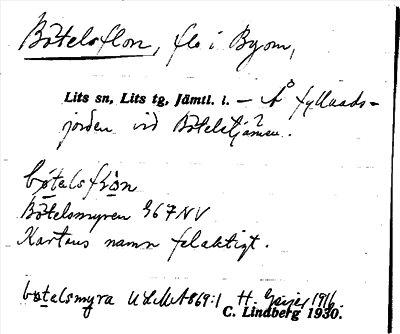 Bötelsflon, flo i Byom,
Lits sn, Lits tg, Jämtl. l. – Å Fyllnads-
jorden vid Bötelstjärnen.
Bötelsmyren 967 NV
Kartans namn felaktigt.
bøtelsmyra ULMA 869:1 H. Geijer 1916.
C. Lindberg 1930.